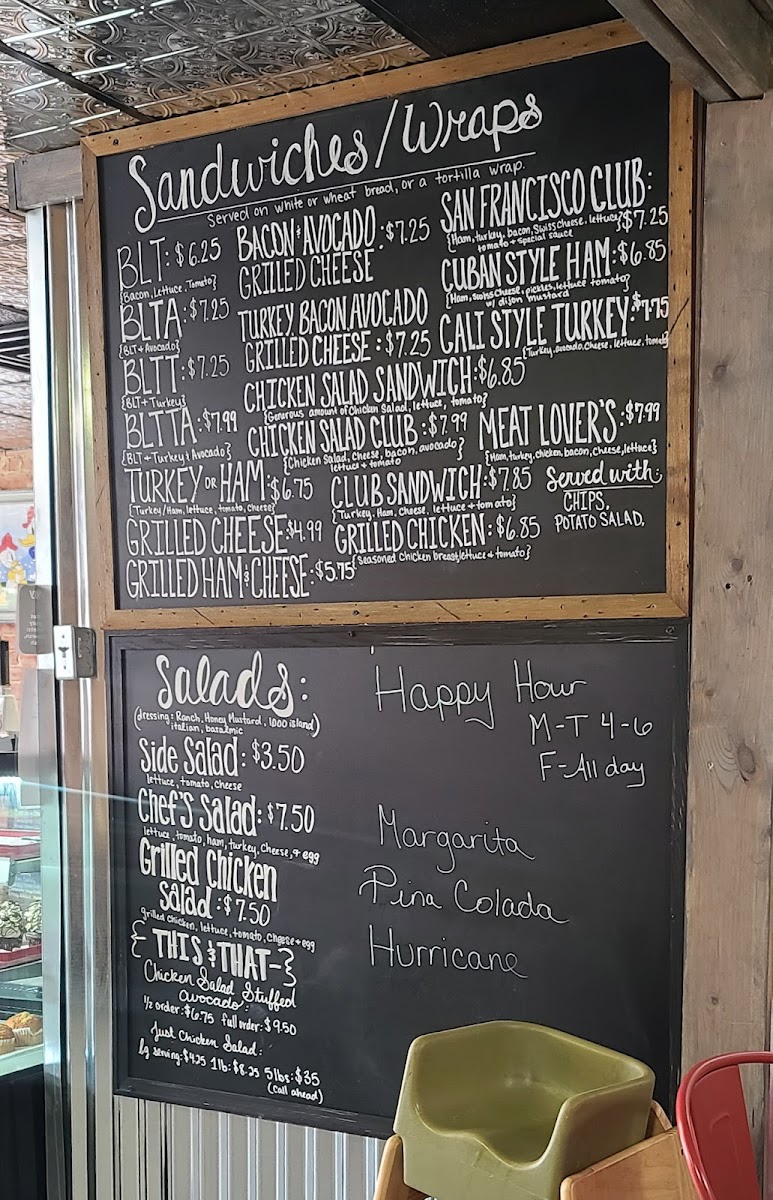 Sandwiches/Wraps
Served on white or wheat bread, or a tortilla wrap.
BLT: $6.25
{Bacon, Lettuce, Tomato}
BLTA: $7.25
{BLT + Avocado}
BLTT: $7.25
{BLT + Turkey}
BLTTA: $7.99
{BLT + Turkey + Avocado}
TURKEY OR HAM: $6.75
{Turkey/Ham, lettuce, tomato, cheese}
GRILLED CHEESE $4.99
GRILLED HAM & CHEESE: $5.75
BACON & AVOCADO
GRILLED CHEESE : $7.25
TURKEY, BACON, AVOCADO
GRILLED CHEESE : $7.25
CHICKEN SALAD SANDWICH: $6.85
{Generous amount of Chicken Salad, lettuce, tomato}
CHICKEN SALAD CLUB : $7.99
{Chicken Salad, Cheese, bacon, avocado}
lettuce + tomato
CLUB SANDWICH: $7.85
{Turkey, Ham, Cheese, lettuce + tomato}
GRILLED CHICKEN: $6.85
{Seasoned Chicken breast, lettuce + tomato}
SAN FRANCISCO CLUB:
{Ham, turkey, bacon, Swiss cheese, lettuce} $7.25
tomato + special sauce
CUBAN STYLE HAM: $6.85
{Ham, swiss cheese, pickles, lettuce tomato}
w/ dijon mustard
CALI STYLE TURKEY: $7.75
{Turkey, avocado, Cheese, lettuce, tomato}
MEAT LOVER'S: $7.99
{Ham, turkey, chicken, bacon, cheese, lettuce}
Served with:
CHIPS,
POTATO SALAD,
Salads:
(dressing: Ranch, Honey Mustard, 1000 island)
italian, balalmic
Side Salad: $3.50
lettuce, tomato, cheese
Chef's Salad: $7.50
lettuce, tomato, ham, turkey, cheese, + egg
Grilled Chicken
Salad: $7.50
grilled chicken, lettuce, tomato, cheese + egg
{- THIS & THAT -}
Chicken Salad Stuffed
Avocado:
1/2 order: $6.75 full order: $9.50
Just Chicken Salad:
lg serving: $4.25 1 lb: $8.25 5 lbs: $35
(call ahead)
Happy Hour
M-T 4-6
F-All day
Margarita
Pina Colada
Hurricane